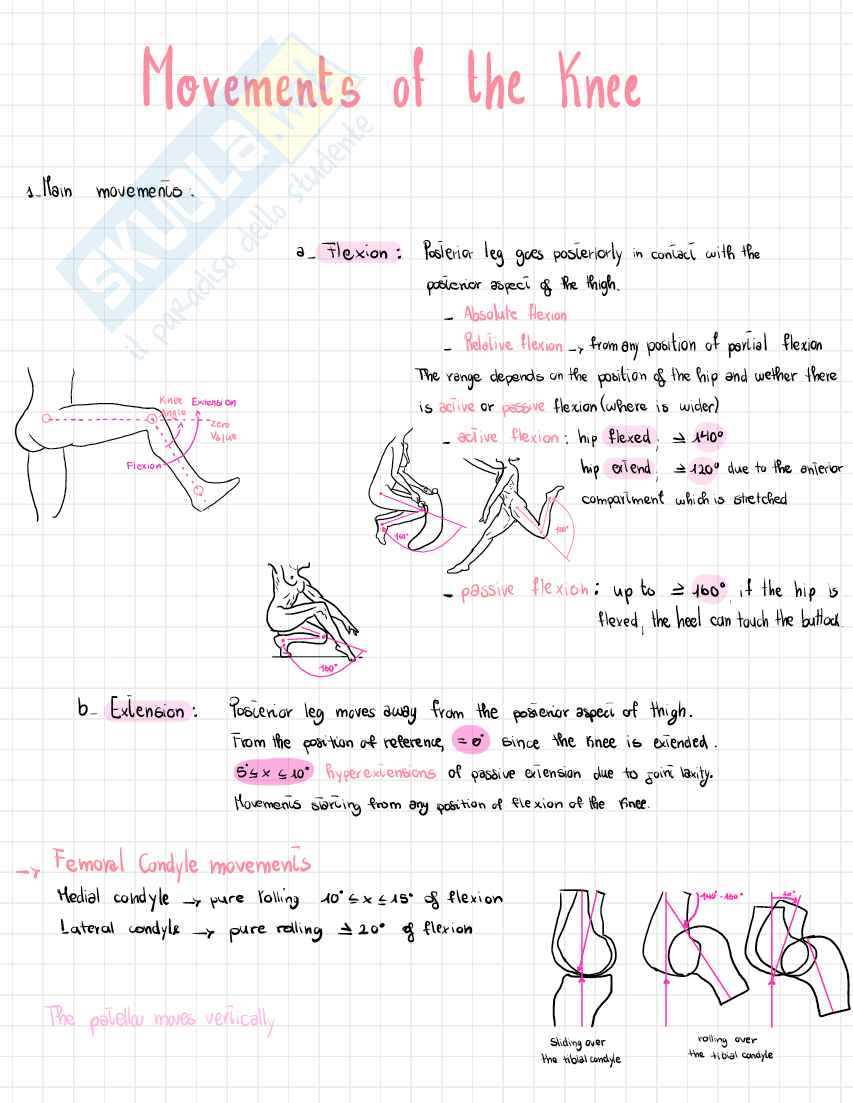 Movements of the Knee
SKUOLA.net
il paradiso dello studente
1_Main movements:
a_ Flexion: Posterior leg goes posteriorly in contact with the
posterior aspect of the thigh.
- Absolute flexion
- Relative flexion → from any position of partial flexion
The range depends on the position of the hip and wether there
is active or passive flexion (where is wider)
Knee Angle
Extension
Zero Value
Flexion
- active flexion: hip flexed: ≃ 140°
hip extend: ≃ 120° due to the anterior
compartment which is stretched
- passive flexion: up to ≃ 160°, if the hip is
flexed, the heel can touch the buttock.
160°
b_ Extension: Posterior leg moves away from the posterior aspect of thigh.
From the position of reference, = 0° since the knee is extended.
5° ≤ x ≤ 10° hyperextensions of passive extension due to joint laxity.
Movements starting from any position of flexion of the knee.
→ Femoral Condyle movements
Medial condyle → pure rolling 10° ≤ x ≤ 15° of flexion
Lateral condyle → pure rolling ≃ 20° of flexion
The patella moves vertically
140° - 160°
Sliding over
the tibial condyle
rolling over
the tibial condyle